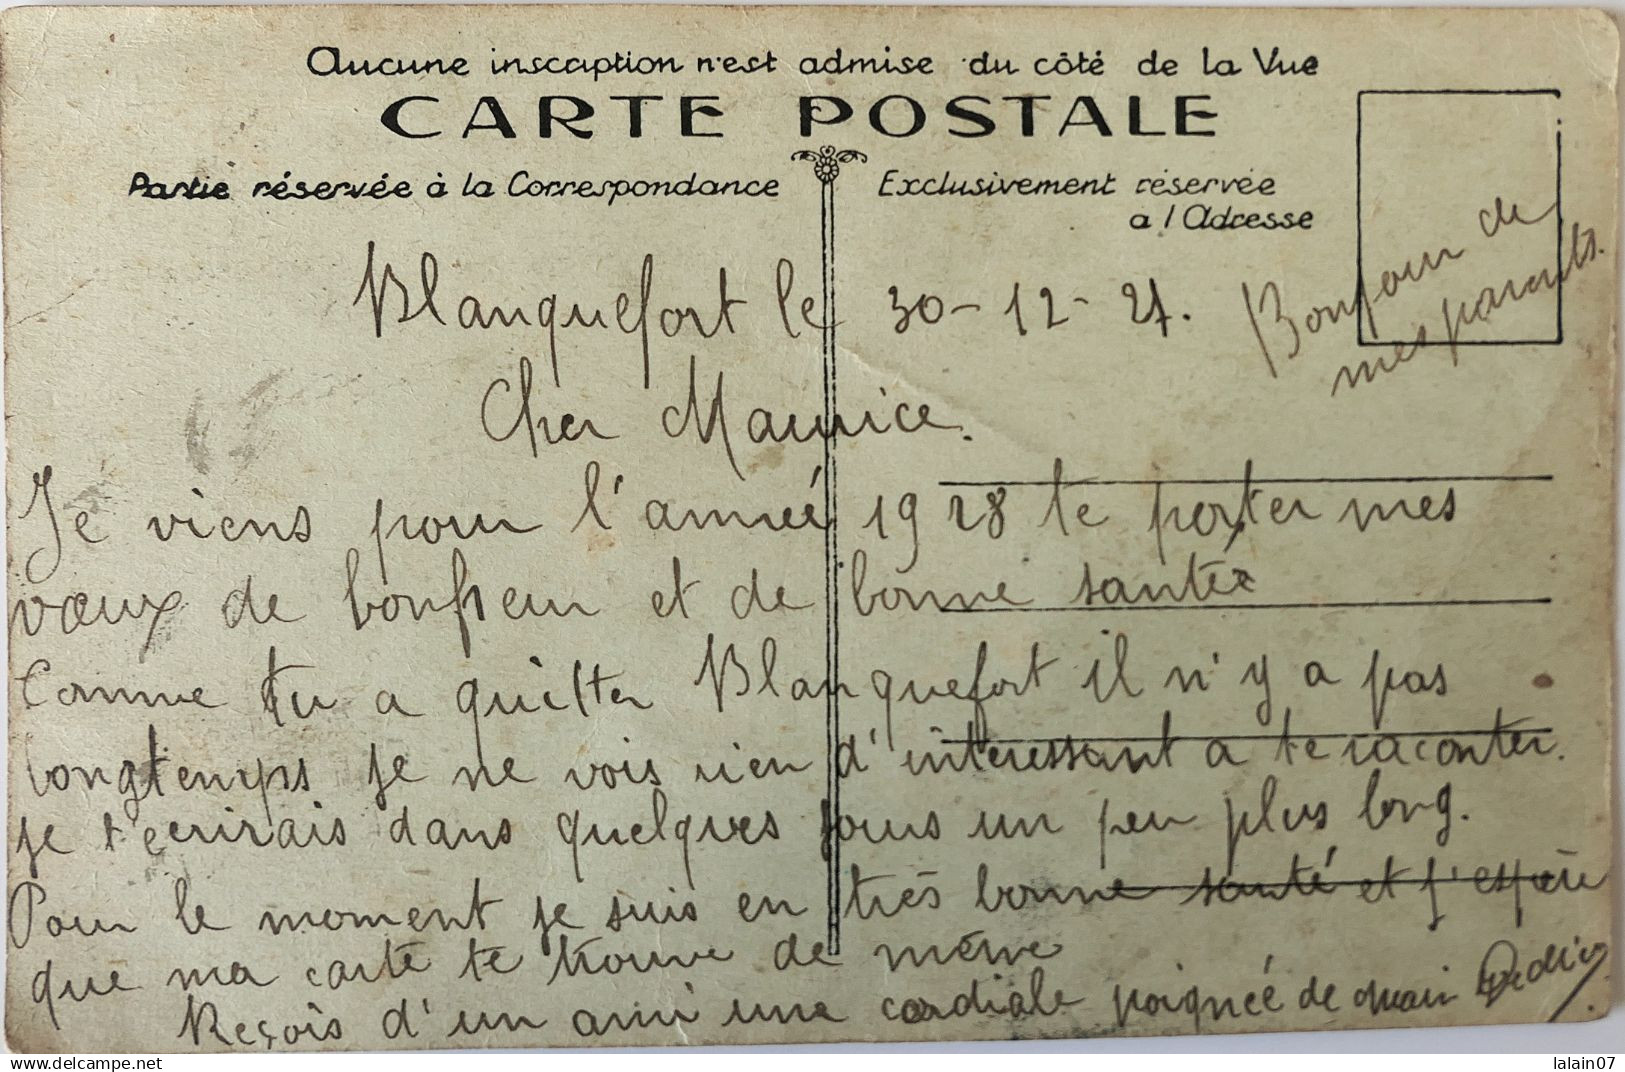 Aucune inscription n'est admise du côté de la Vue
CARTE POSTALE
Partie réservée à la Correspondance
Exclusivement réservée
a l Adresse
Bonjour de
mes parents.
Blanquefort le 30-12-27.
Cher Maurice.
Je viens pour l'année 1928 te porter mes
vœux de bonheur et de bonne santée
Comme tu a quitter Blanquefort il n'y a pas
longtemps je ne vois rien d'intéressant a te raconter.
je t'ecrirais dans quelques jours un peu plus long.
Pour le moment je suis en très bonne santé et j'espère
que ma carte te trouve de même
Reçois d'un ami une cordiale poignée de main
delcampe.net
lalain07